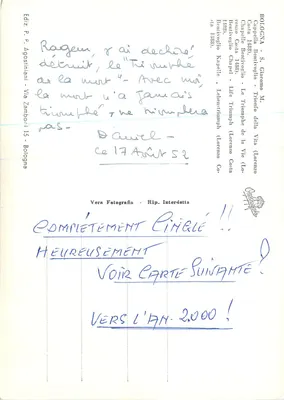 BOLOGNA - S. Giacomo M.
Cappella Bentivoglio - Trionfo della Vita (Lorenzo
Costa 1488).
Chapelle Bentivoglio - Le Triomphe de la Vie (Lo-
renzo Costa 1488).
Bentivoglio Chapel - Life Triumph (Lorenzo Costa
1488).
Bentivoglio Kapelle - Lebenstriumph (Lorenzo Co-
sta 1488).
Rageur, j'ai déchiré,
détruit, le "Triomphe
de la mort" - Avec moi,
la mort n'a jamais
triomphé, ne triomphera
pas -
Daniel -
ce 17 Août 52
Ediz. P. F. Agostiniani - Via Zamboni 15 - Bologna
Vera Fotografia - Rip. Interdetta
COMPLÈTEMENT CINGLÉ !!
HEUREUSEMENT
VOIR CARTE SUIVANTE !
VERS L'AN. 2.000 !